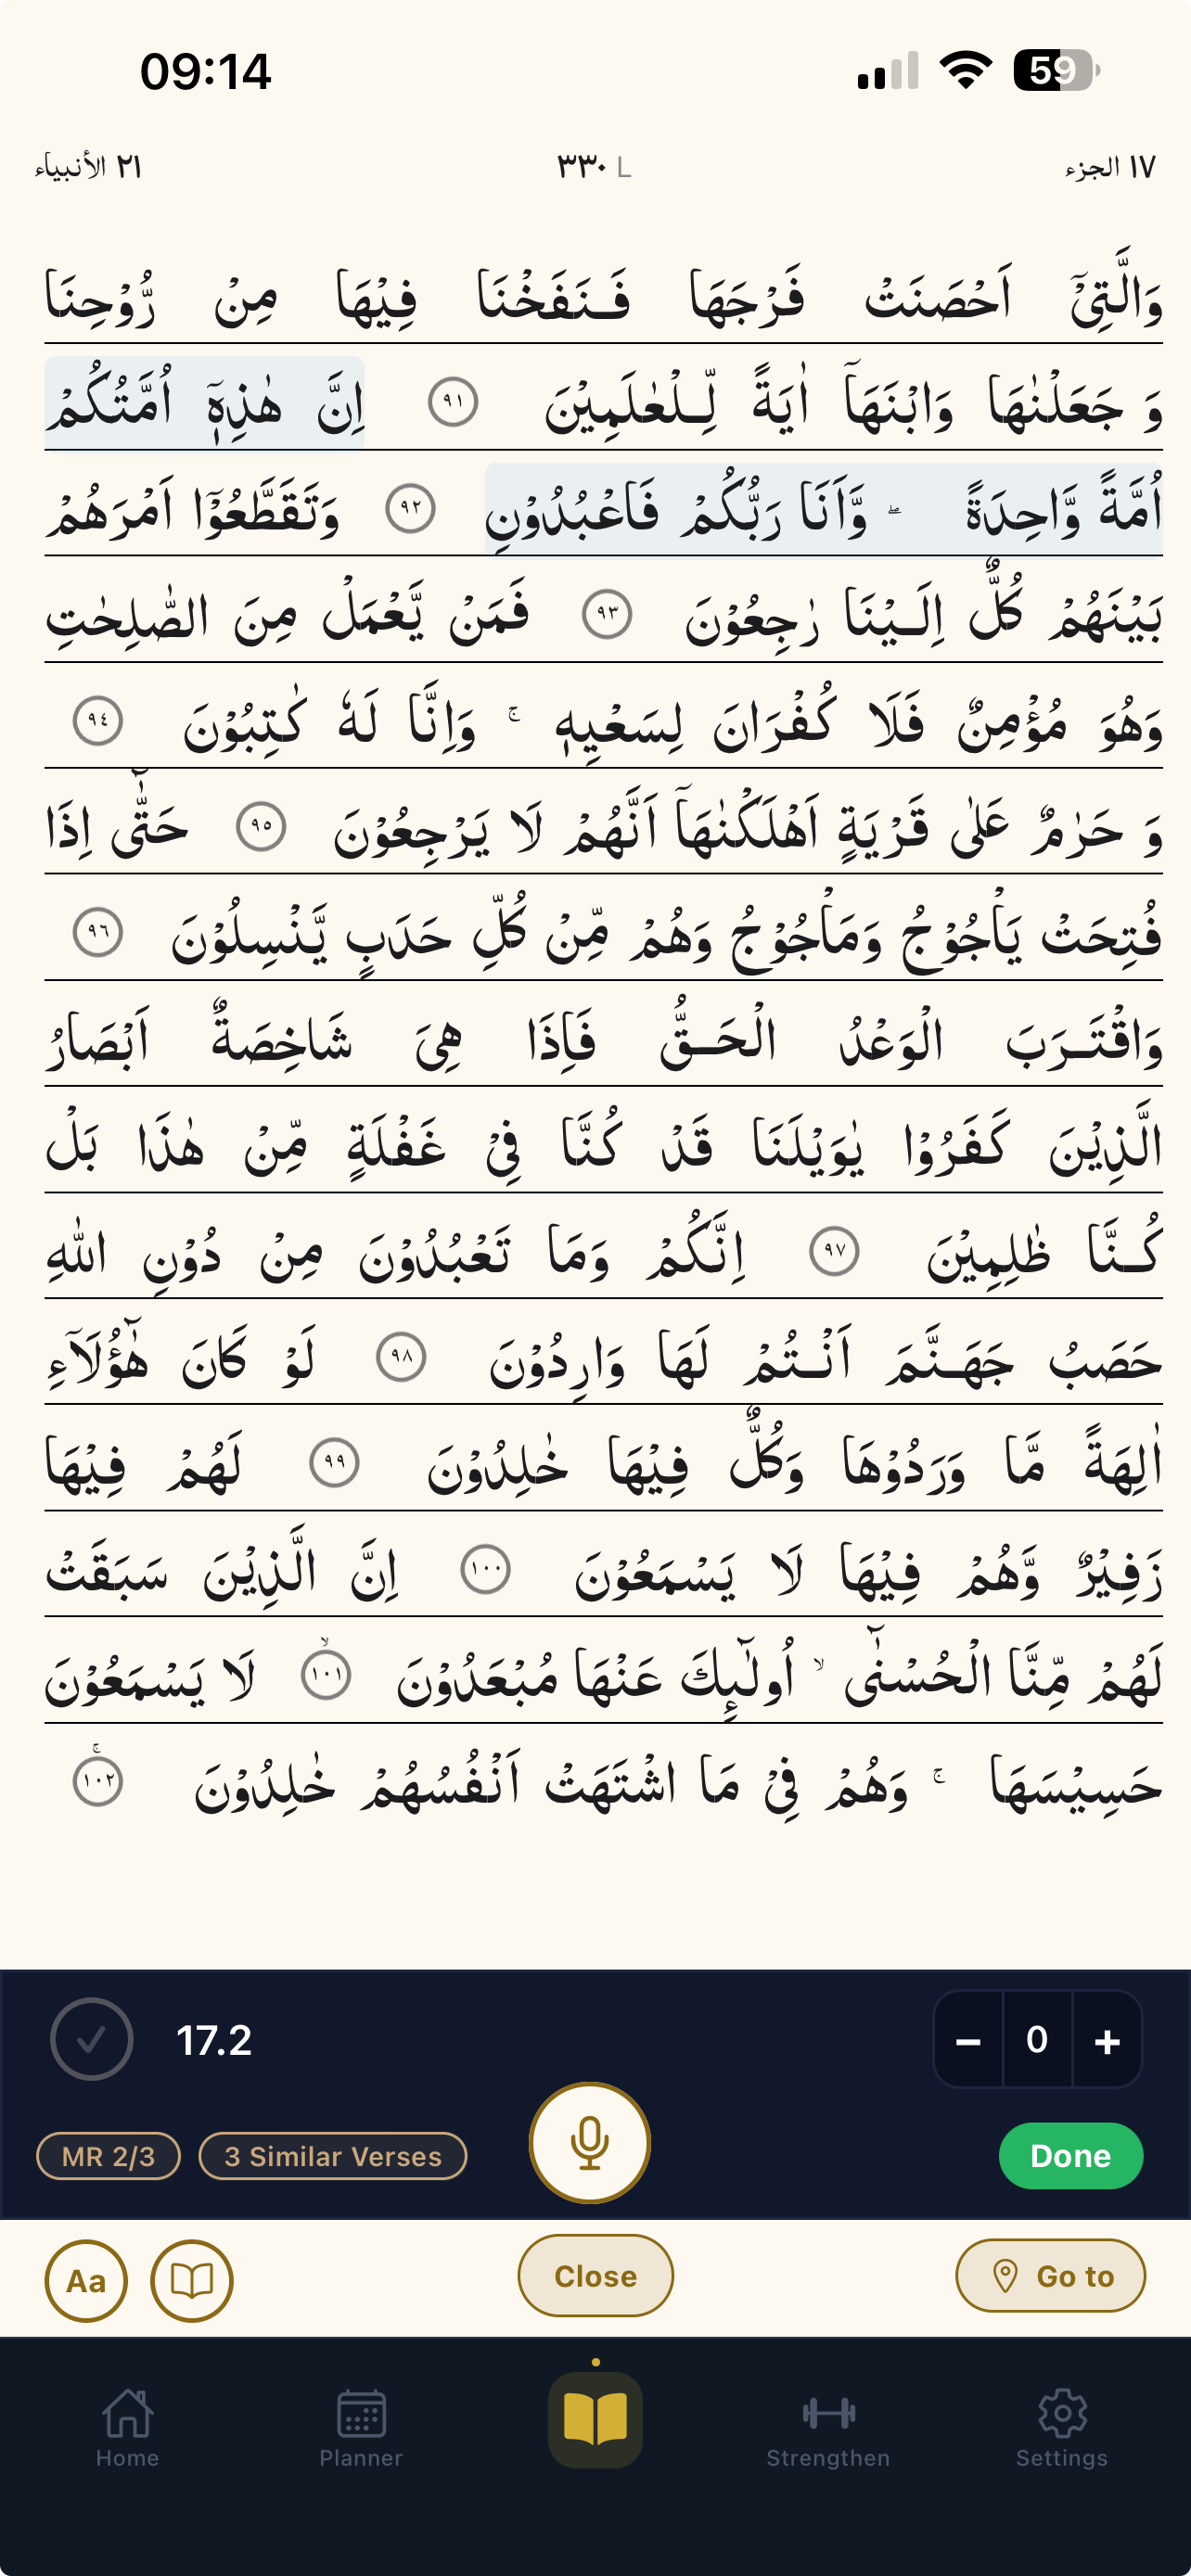 09:14
59
١٧ الجزء
٣٣٠ L
٢١ الأنبياء
وَالَّتِىْۤ اَحْصَنَتْ فَرْجَهَا فَـنَفَخْنَا فِيْهَا مِنْ رُّوْحِنَا
وَ جَعَلْنٰهَا وَابْنَهَاۤ اٰيَةً لِّـلْعٰلَمِيْنَ ٩١ اِنَّ هٰذِهٖۤ اُمَّتُكُمْ
اُمَّةً وَّاحِدَةً ۖ وَّاَنَا رَبُّكُمْ فَاعْبُدُوْنِ ٩٢ وَتَقَطَّعُوْۤا اَمْرَهُمْ
بَيْنَهُمْ كُلٌّ اِلَـيْنَا رٰجِعُوْنَ ٩٣ فَمَنْ يَّعْمَلْ مِنَ الصّٰلِحٰتِ
وَهُوَ مُؤْمِنٌ فَلَا كُفْرَانَ لِسَعْيِهٖ ۚ وَاِنَّا لَهٗ كٰتِبُوْنَ ٩٤
وَ حَرٰمٌ عَلٰى قَرْيَةٍ اَهْلَكْنٰهَاۤ اَنَّهُمْ لَا يَرْجِعُوْنَ ٩٥ حَتّٰٓى اِذَا
فُتِحَتْ يَاْجُوْجُ وَمَاْجُوْجُ وَهُمْ مِّنْ كُلِّ حَدَبٍ يَّنْسِلُوْنَ ٩٦
وَاقْتَـرَبَ الْوَعْدُ الْحَـقُّ فَاِذَا هِىَ شَاخِصَةٌ اَبْصَارُ
الَّذِيْنَ كَفَرُوْا يٰوَيْلَنَا قَدْ كُنَّا فِىْ غَفْلَةٍ مِّنْ هٰذَا بَلْ
كُـنَّا ظٰلِمِيْنَ ٩٧ اِنَّكُمْ وَمَا تَعْبُدُوْنَ مِنْ دُوْنِ اللّٰهِ
حَصَبُ جَهَـنَّمَ اَنْـتُمْ لَهَا وَارِدُوْنَ ٩٨ لَوْ كَانَ هٰٓؤُلَاۤءِ
اٰلِهَةً مَّا وَرَدُوْهَا وَكُلٌّ فِيْهَا خٰلِدُوْنَ ٩٩ لَهُمْ فِيْهَا
زَفِيْرٌ وَّهُمْ فِيْهَا لَا يَسْمَعُوْنَ ١٠٠ اِنَّ الَّذِيْنَ سَبَقَتْ
لَهُمْ مِّنَّا الْحُسْنٰٓى ۙ اُولٰٓٮِٕكَ عَنْهَا مُبْعَدُوْنَ ۙ ١٠١ لَا يَسْمَعُوْنَ
حَسِيْسَهَا ۚ وَهُمْ فِىْ مَا اشْتَهَتْ اَنْفُسُهُمْ خٰلِدُوْنَ ۚ ١٠٢
17.2
− 0 +
MR 2/3
3 Similar Verses
Done
Aa
Close
Go to
Home
Planner
Strengthen
Settings